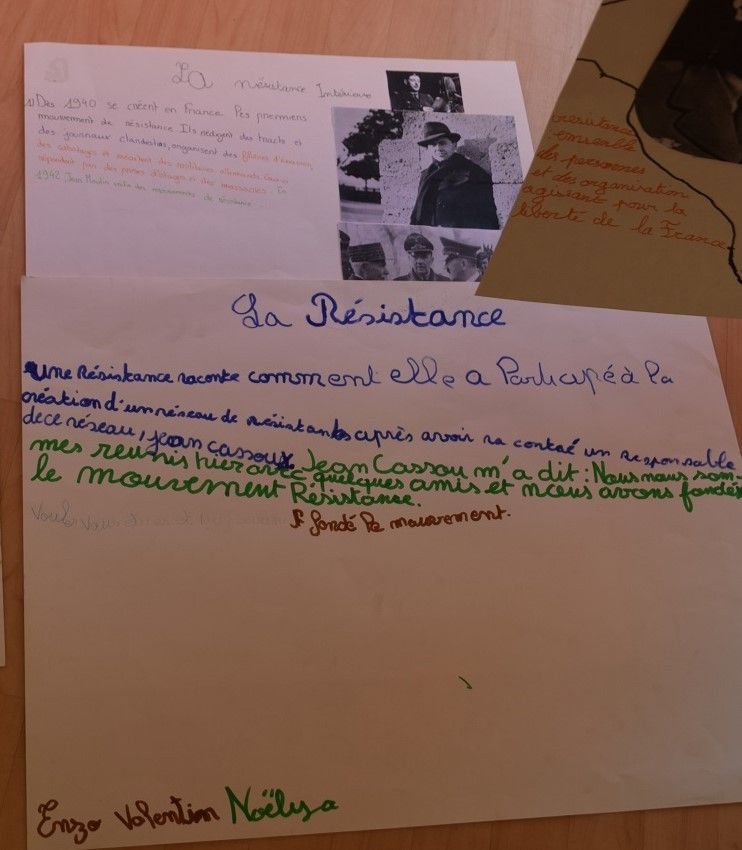 La résistance Intérieure
1) Des 1940 se créent en France. Des premiers
mouvement de résistance. Ils rédigent des tracts et
des journaux clandestins, organisent des filières d'évasion,
des sabotages et exécutent des militaires allemands. Ceux-ci
répondent par des prises d'otages et des massacres. En
1942, Jean Moulin unifie des mouvements de résistance.
résistance
ensemble
des personnes
et des organisation
agissant pour la
liberté de la France
La Résistance
Une Résistance raconte comment elle a Participé à la
création d'un réseau de résistants après avoir ra contré un responsable
de ce réseau, jean cassoux
Jean Cassou m'a dit : Nous nous som-
mes reunis hier avec quelques amis et nous avons fondés
le mouvement Résistance.
fondé le mouvement.
Enzo Valentin Noëlysa